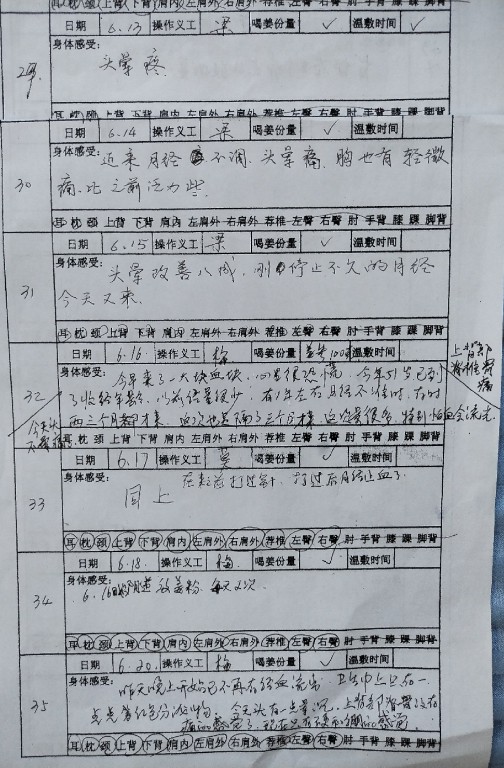 耳 枕 颈 上背 下背 肩内 左肩外 右肩外 荐椎 左臀 右臀 肘 手背 膝 踝 脚背
日期 6.13 操作义工 梁 喝姜份量 ✓ 温敷时间 ✓
29 身体感受:
头晕疼
耳 枕 颈 上背 下背 肩内 左肩外 右肩外 荐椎 左臀 右臀 肘 手背 膝 踝 脚背
日期 6.14 操作义工 梁 喝姜份量 ✓ 温敷时间
30 身体感受: 近来月经不调、头晕痛、胸也有轻微
痛,比之前活力些.
耳 枕 颈 上背 下背 肩内 左肩外 右肩外 荐椎 左臀 右臀 肘 手背 膝 踝 脚背
日期 6.15 操作义工 梁 喝姜份量 ✓ 温敷时间
31 身体感受: 头晕改善八成,刚停止不久的月经
今天又来.
耳 枕 颈 上背 下背 肩内 左肩外 右肩外 荐椎 左臀 右臀 肘 手背 膝 踝 脚背
日期 6.16. 操作义工 梅 喝姜份量 温敷时间
上背部
32 身体感受: 今年来了一大块血块,心里很恐慌,今年51岁已到
了 年龄,以前经量很少,有1年左右月经不准时,有时
两三个月才来,这次也是隔了三个月才来,这次量很多,特别怕血会流光
今天头
耳 枕 颈 上背 下背 肩内 左肩外 右肩外 荐椎 左臀 右臀 肘 手背 膝 踝 脚背
日期 6.17 操作义工 喝姜份量 ✓ 温敷时间
33 身体感受: 打过针,打过后月经止血了.
同上
耳 枕 颈 上背 下背 肩内 左肩外 右肩外 荐椎 左臀 右臀 肘 手背 膝 踝 脚背
日期 6.18. 操作义工 梅 喝姜份量 ✓ 温敷时间
34 身体感受:
6.16 敷姜粉.每天2次.
耳 枕 颈 上背 下背 肩内 左肩外 右肩外 荐椎 左臀 右臀 肘 手背 膝 踝 脚背
日期 6.20. 操作义工 梅 喝姜份量 ✓ 温敷时间
35 身体感受: 昨天晚上开始已不再有经血流出 卫生巾上只有一
点点 色分泌物.今天头有一点晕沉,上背部 没有
痛的感觉了,现在只有 的感觉
耳 枕 颈 上背 下背 肩内 左肩外 右肩外 荐椎 左臀 右臀 肘 手背 膝 踝 脚背